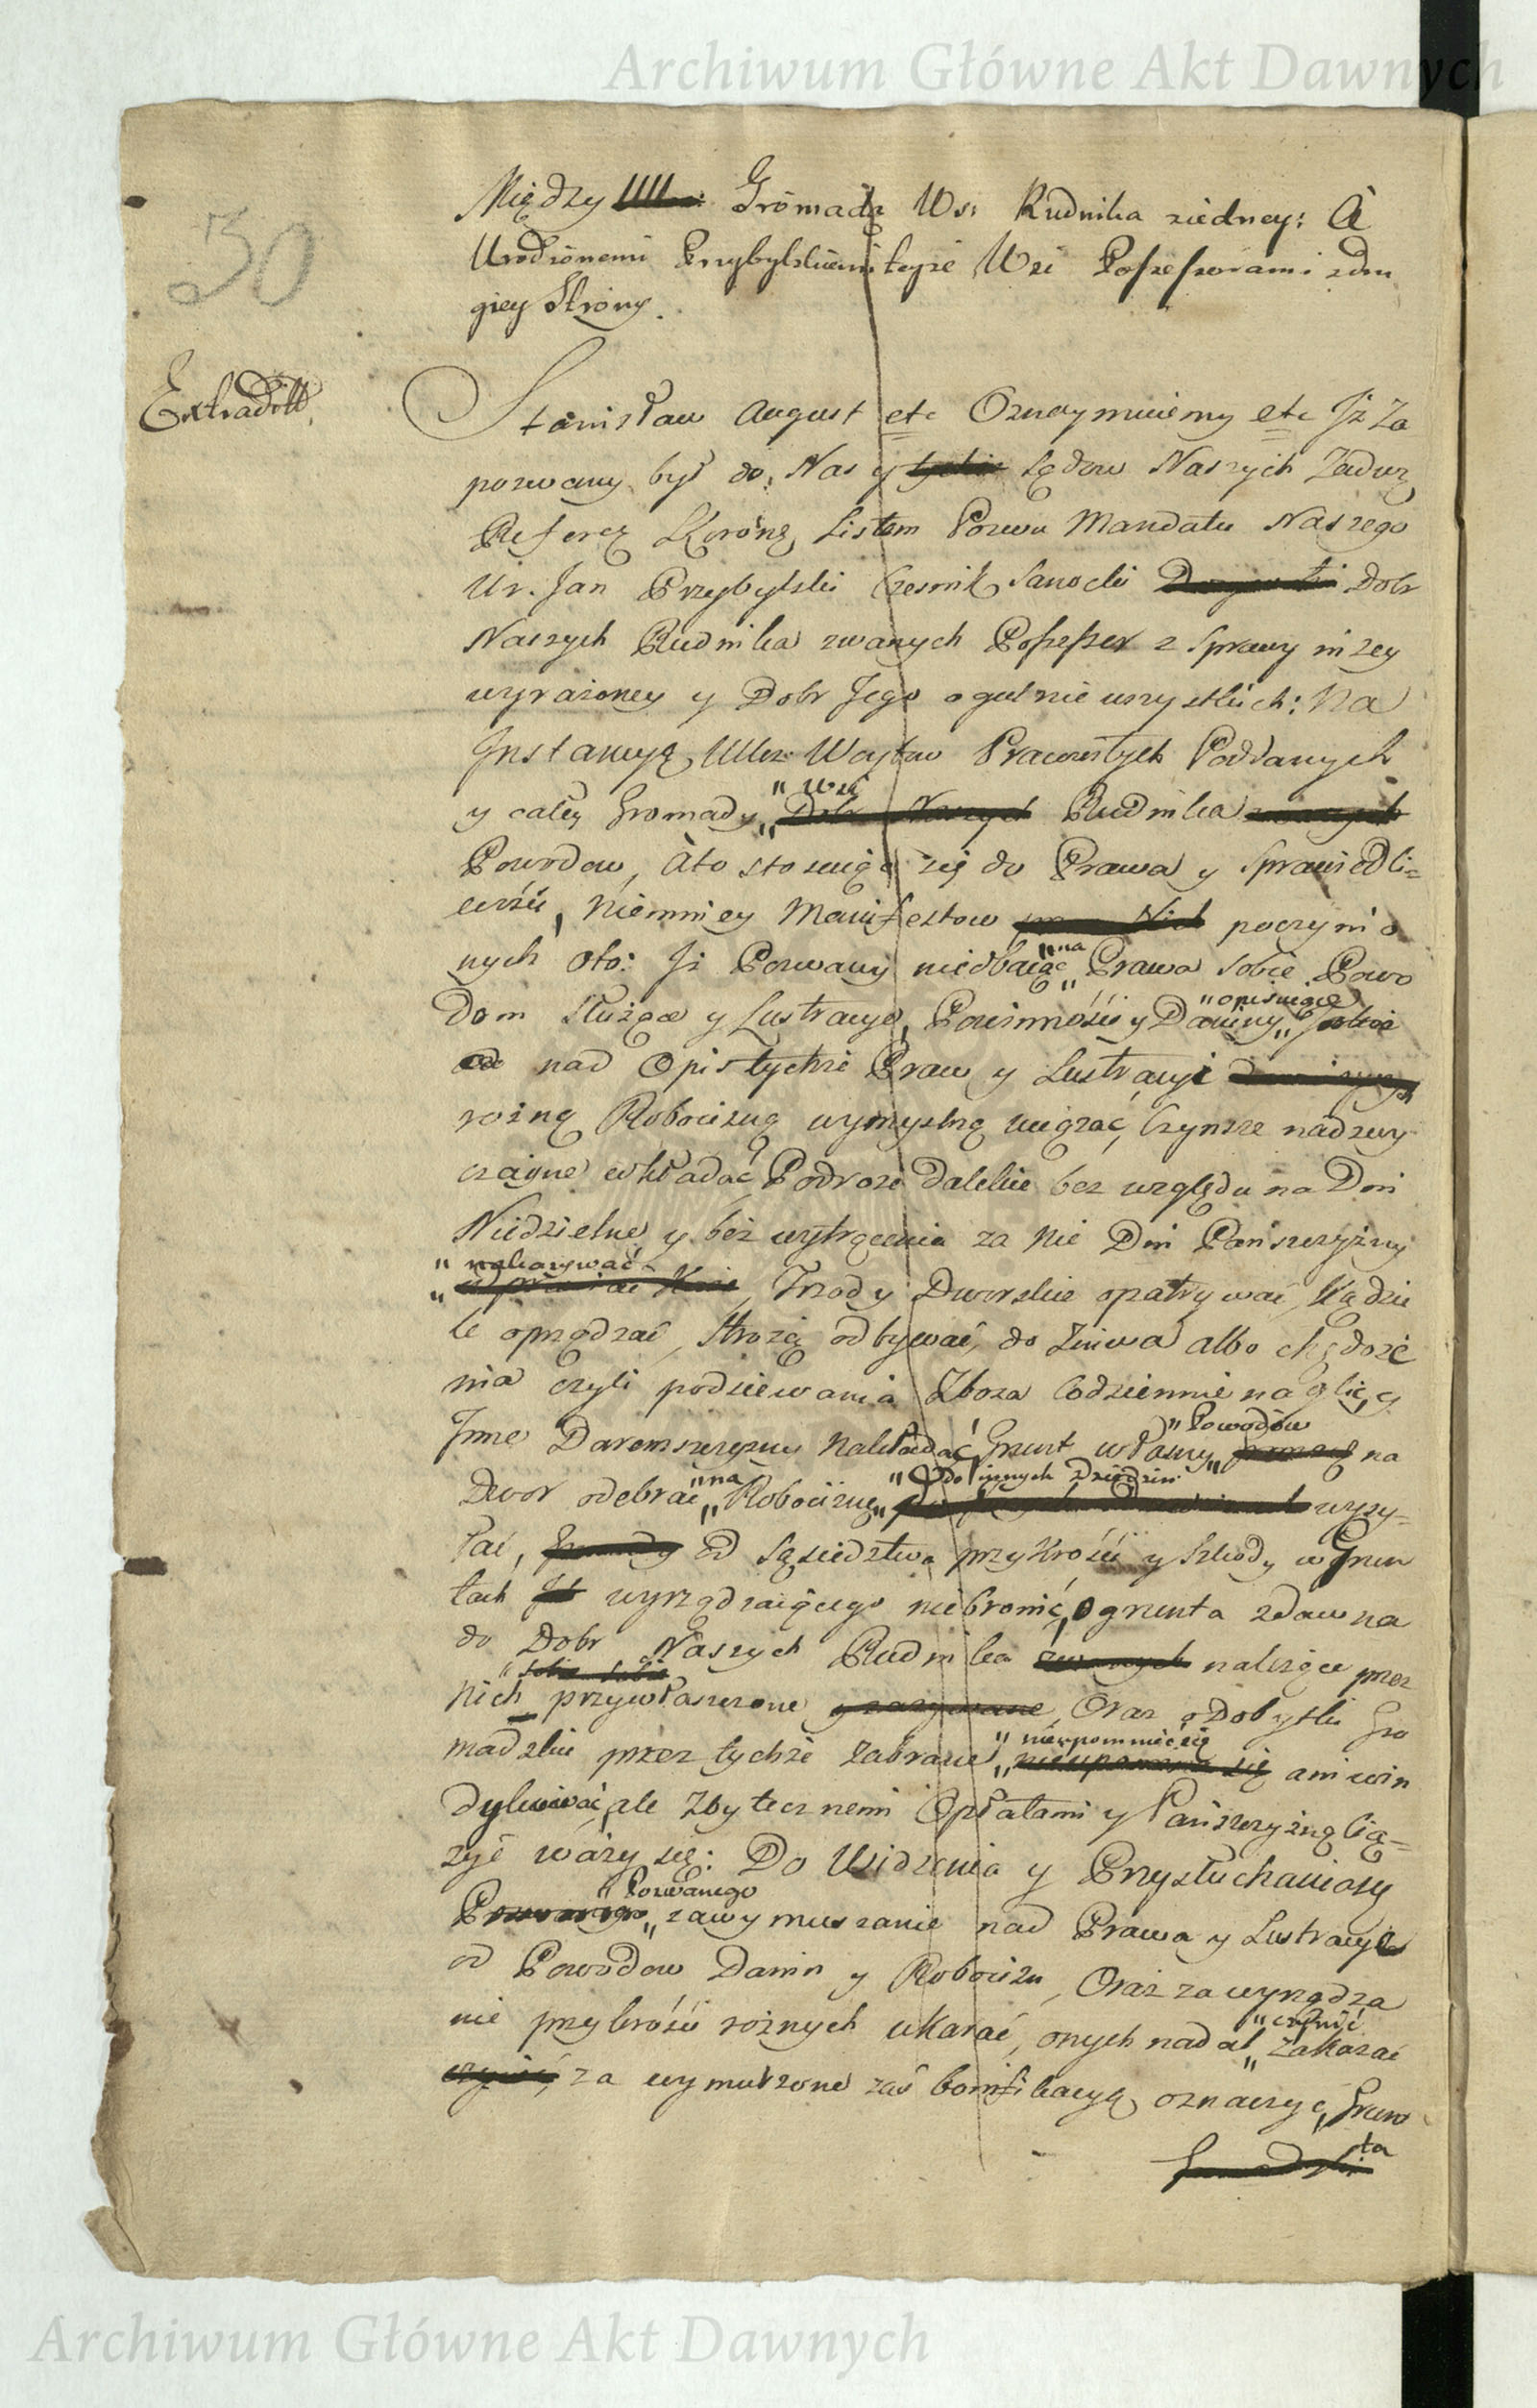 Archiwum Główne Akt Dawnych
30
Między Gromadą Wsi Rudnika ziedney: A
Urodzonemi Przybylskiemi teyże Wsi Possessorami zdru
giey Strony.
Extradltt.
Stanisław August etc Oznaymuiemy etc Jż Za
pozwany był do Nas y Sądow Naszych Zadw
Referen Koronn Listem Pozwu Mandatu Naszego
Ur. Jan Przybylski Czesnik Sanocki Dobr
Naszych Rudnika zwanych Possessor z Sprawy niżey
wyrażoney y Dobr Jego ogulnie wszystkich: Na
Jnstancyą Woytow Pracowitych Poddanych
y całey Gromady „Wsi Rudnika
Powodow, Ato stosuiąc się do Prawa y Sprawiedli=
wości, Niemniey Manifestow poczynio
nych Oto: Jż Pozwany niedbaiąc „na Prawa Sobie Powo
dom Służące y Lustracye, Powinności y Daniny „opisuiące
nad Opis tychże Praw y Lustracyi
rożną Robociznę wymyslną uciązać, Czynsze nadzwy
czaine wkładać Podroże dalekie bez względu na Dni
Niedzielne y bez wytrącenia za Nie Dni Panszczyzny
„nakazywać Trzody Dworskie opatrywać, Kądzie
le oprządzać, Strożą odbywać, do Żniwa albo chędoże
nia czyli podsiewania Zboża Codziennie naglić, y
Jnne Daremszczyzny nakładać, Grunt własny „Powodow na
Dwor odebrać „na Robociznę „do innych Dziedzin wysy=
łać, od Sąsiedztwa przykrości y Szkody w Grun
tach wyrządzaiącego niebronić, O grunta zdawna
do Dobr Naszych Rudnika należące przez
Nich przywłaszczone Oraz o Dobytki Gro
madzkie przez tychże zabrane „nieupomniec się ani win
dykować, ale Zbytecznemi Opłatami y Panszczyzną Cią=
żyć waży się: Do Widzenia y Przysłuchania się
„Pozwanego za wymuszanie nad Prawa y Lustracye
od Powodow Danin y Robocizn, Oraz za wyrządza
nie przykrości rożnych ukarać, onych nadal „czynić zakazać
za wymuszone zaś bonifikacyą oznaczyć, Grun
ta
Archiwum Główne Akt Dawnych